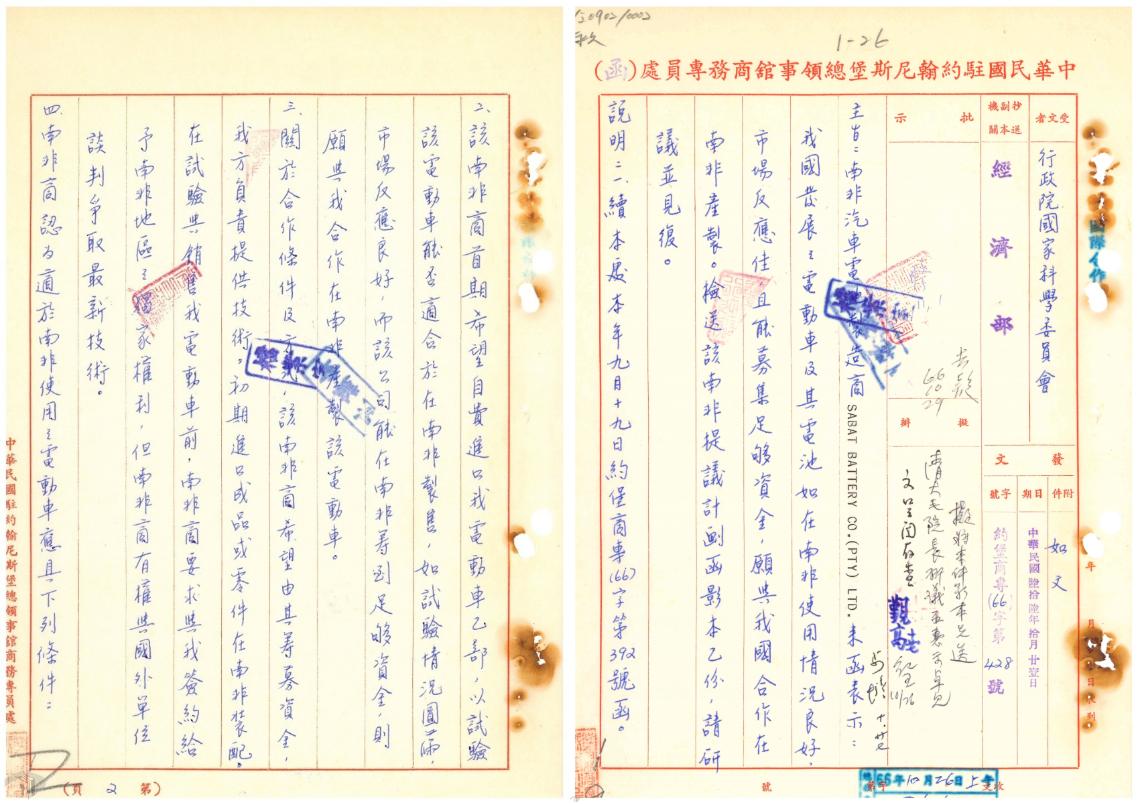 1-26
中華民國駐約翰尼斯堡總領事館商務專員處(函)
受文者
行政院國家科學委員會
抄送
副本
機關
經濟部
發文
附件
如文
日期
中華民國陸拾陸年拾月廿壹日
字號
約堡商專(66)字第428號
批示
66
10
29
擬辦
主旨:南非汽車電池製造商 SABAT BATTERY CO. (PTY) LTD. 來函表示:
我國發展之電動車及其電池如在南非使用情況良好,
市場反應佳,且能募集足够資金,願與我國合作在
南非產製。檢送該南非提議計劃函影本乙份,請研
議並見復。
說明:一、續本處本年九月十九日約堡商專(66)字第392號函。
66年10月26日上午
收文
號
國際合作
二、該南非商首期希望自費進口我電動車乙部,以試驗
該電動車能否適合於在南非製售,如試驗情況圓滿,
市場反應良好,而該公司能在南非籌到足够資金,則
願與我合作在南非產製該電動車。
三、關於合作條件及方式,該南非商希望由其籌募資金,
我方負責提供技術,初期進口成品或零件在南非裝配。
在試驗與銷售我電動車前,南非商要求與我簽約給
予南非地區之獨家權利,但南非商有權與國外單位
談判爭取最新技術。
四、南非商認為適於南非使用之電動車應具下列條件:
中華民國駐約翰尼斯堡總領事館商務專員處
(第2頁)